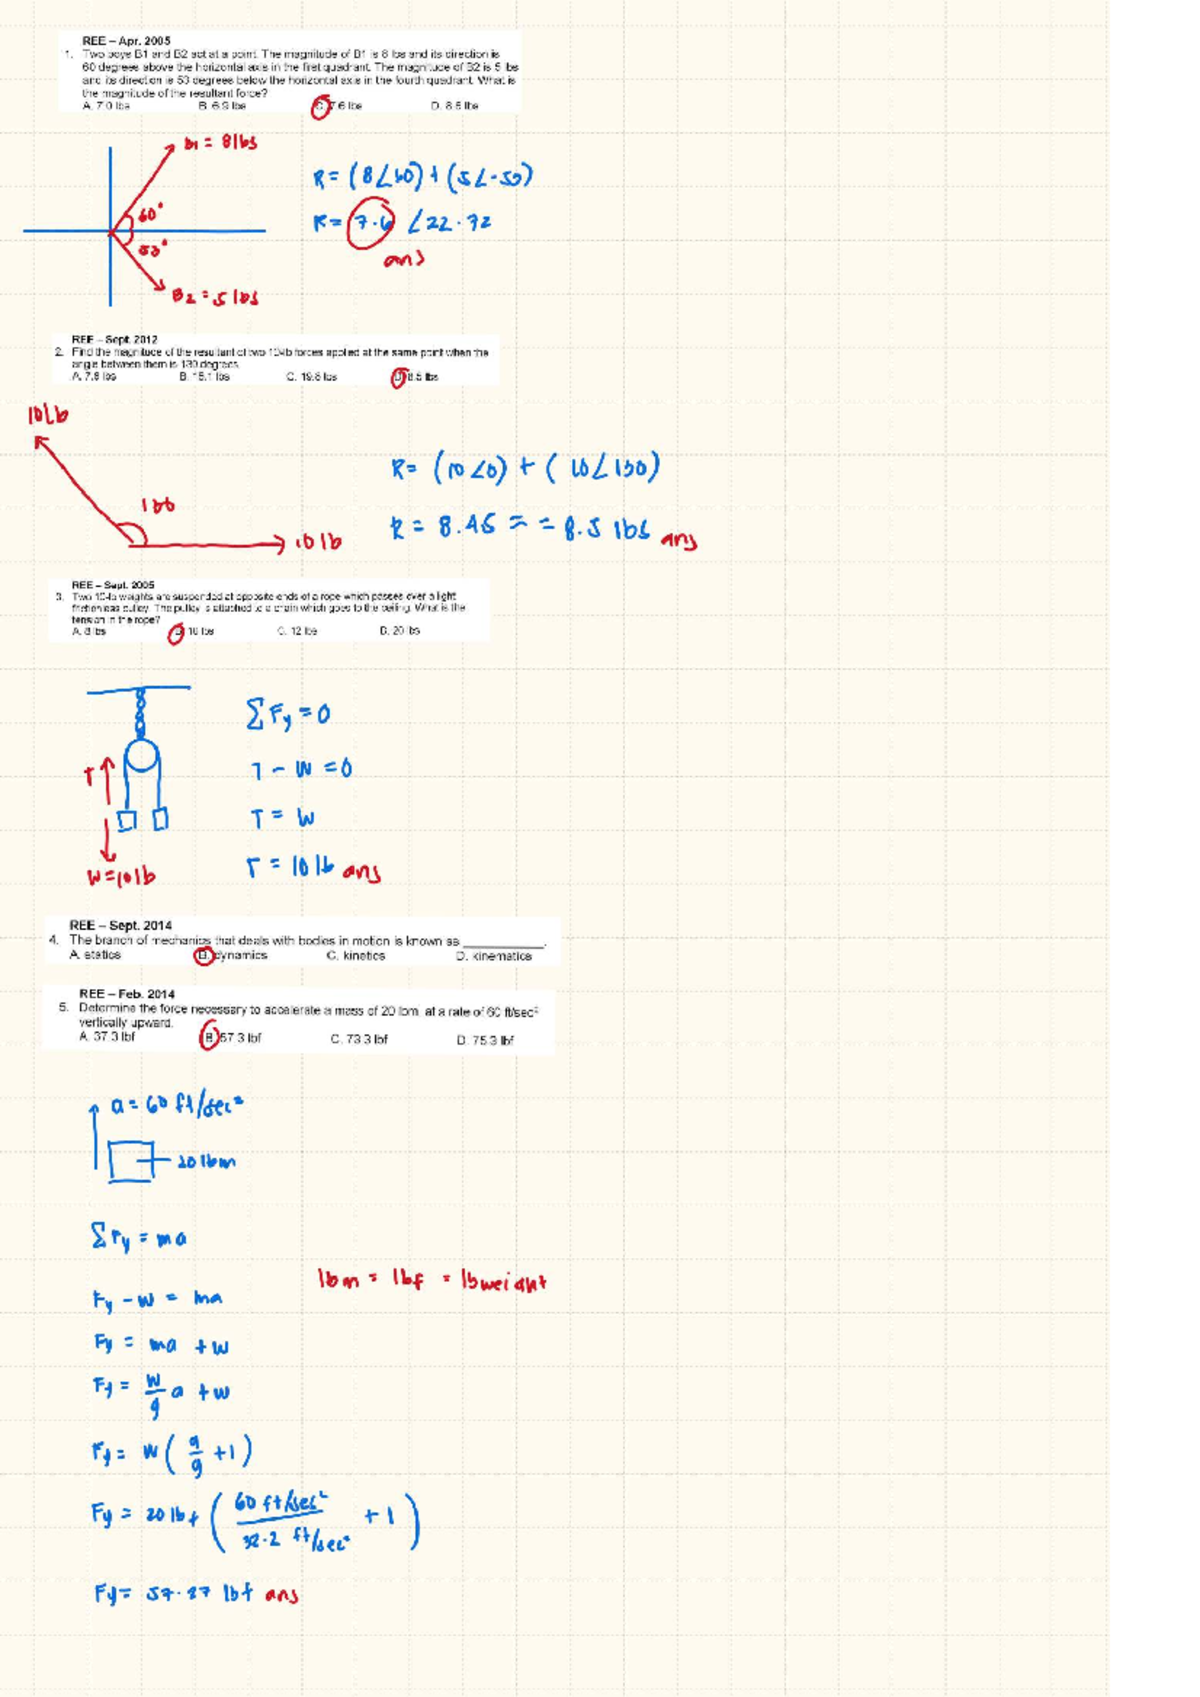 REE – Apr. 2005
1. Two boys B1 and B2 act at a point. The magnitude of B1 is 8 lbs and its direction is
60 degrees above the horizontal axis in the first quadrant. The magnitude of B2 is 5 lbs
and its direction is 53 degrees below the horizontal axis in the fourth quadrant. What is
the magnitude of the resultant force?
A. 7.0 lbs B. 6.9 lbs C. 7.6 lbs D. 8.5 lbs
B1 = 8 lbs
60°
53°
B2 = 5 lbs
R = (8∠60) + (5∠-53)
R = 7.6 ∠22.72
ans
REE – Sept. 2012
2. Find the magnitude of the resultant of two 10-lb forces applied at the same point when the
angle between them is 130 degrees.
A. 7.8 lbs B. 15.1 lbs C. 19.8 lbs D. 8.5 lbs
10 lb
130
10 lb
R = (10∠0) + (10∠130)
R = 8.45 ≈ = 8.5 lbs ans
REE – Sept. 2005
3. Two 10-lb weights are suspended at opposite ends of a rope which passes over a light
frictionless pulley. The pulley is attached to a chain which goes to the ceiling. What is the
tension in the rope?
A. 8 lbs B. 10 lbs C. 12 lbs D. 20 lbs
T
W = 10 lb
ΣFy = 0
T - W = 0
T = W
T = 10 lb ans
REE – Sept. 2014
4. The branch of mechanics that deals with bodies in motion is known as ____________.
A. statics B. dynamics C. kinetics D. kinematics
REE – Feb. 2014
5. Determine the force necessary to accelerate a mass of 20 lbm at a rate of 60 ft/sec²
vertically upward.
A. 37.3 lbf B. 57.3 lbf C. 73.3 lbf D. 75.3 lbf
a = 60 ft/sec²
20 lbm
ΣFy = ma
lbm = lbf = lb weight
Fy - W = ma
Fy = ma + W
Fy = W/g a + W
Fy = W (a/g + 1)
Fy = 20 lbf (60 ft/sec² / 32.2 ft/sec² + 1)
Fy = 57.27 lbf ans